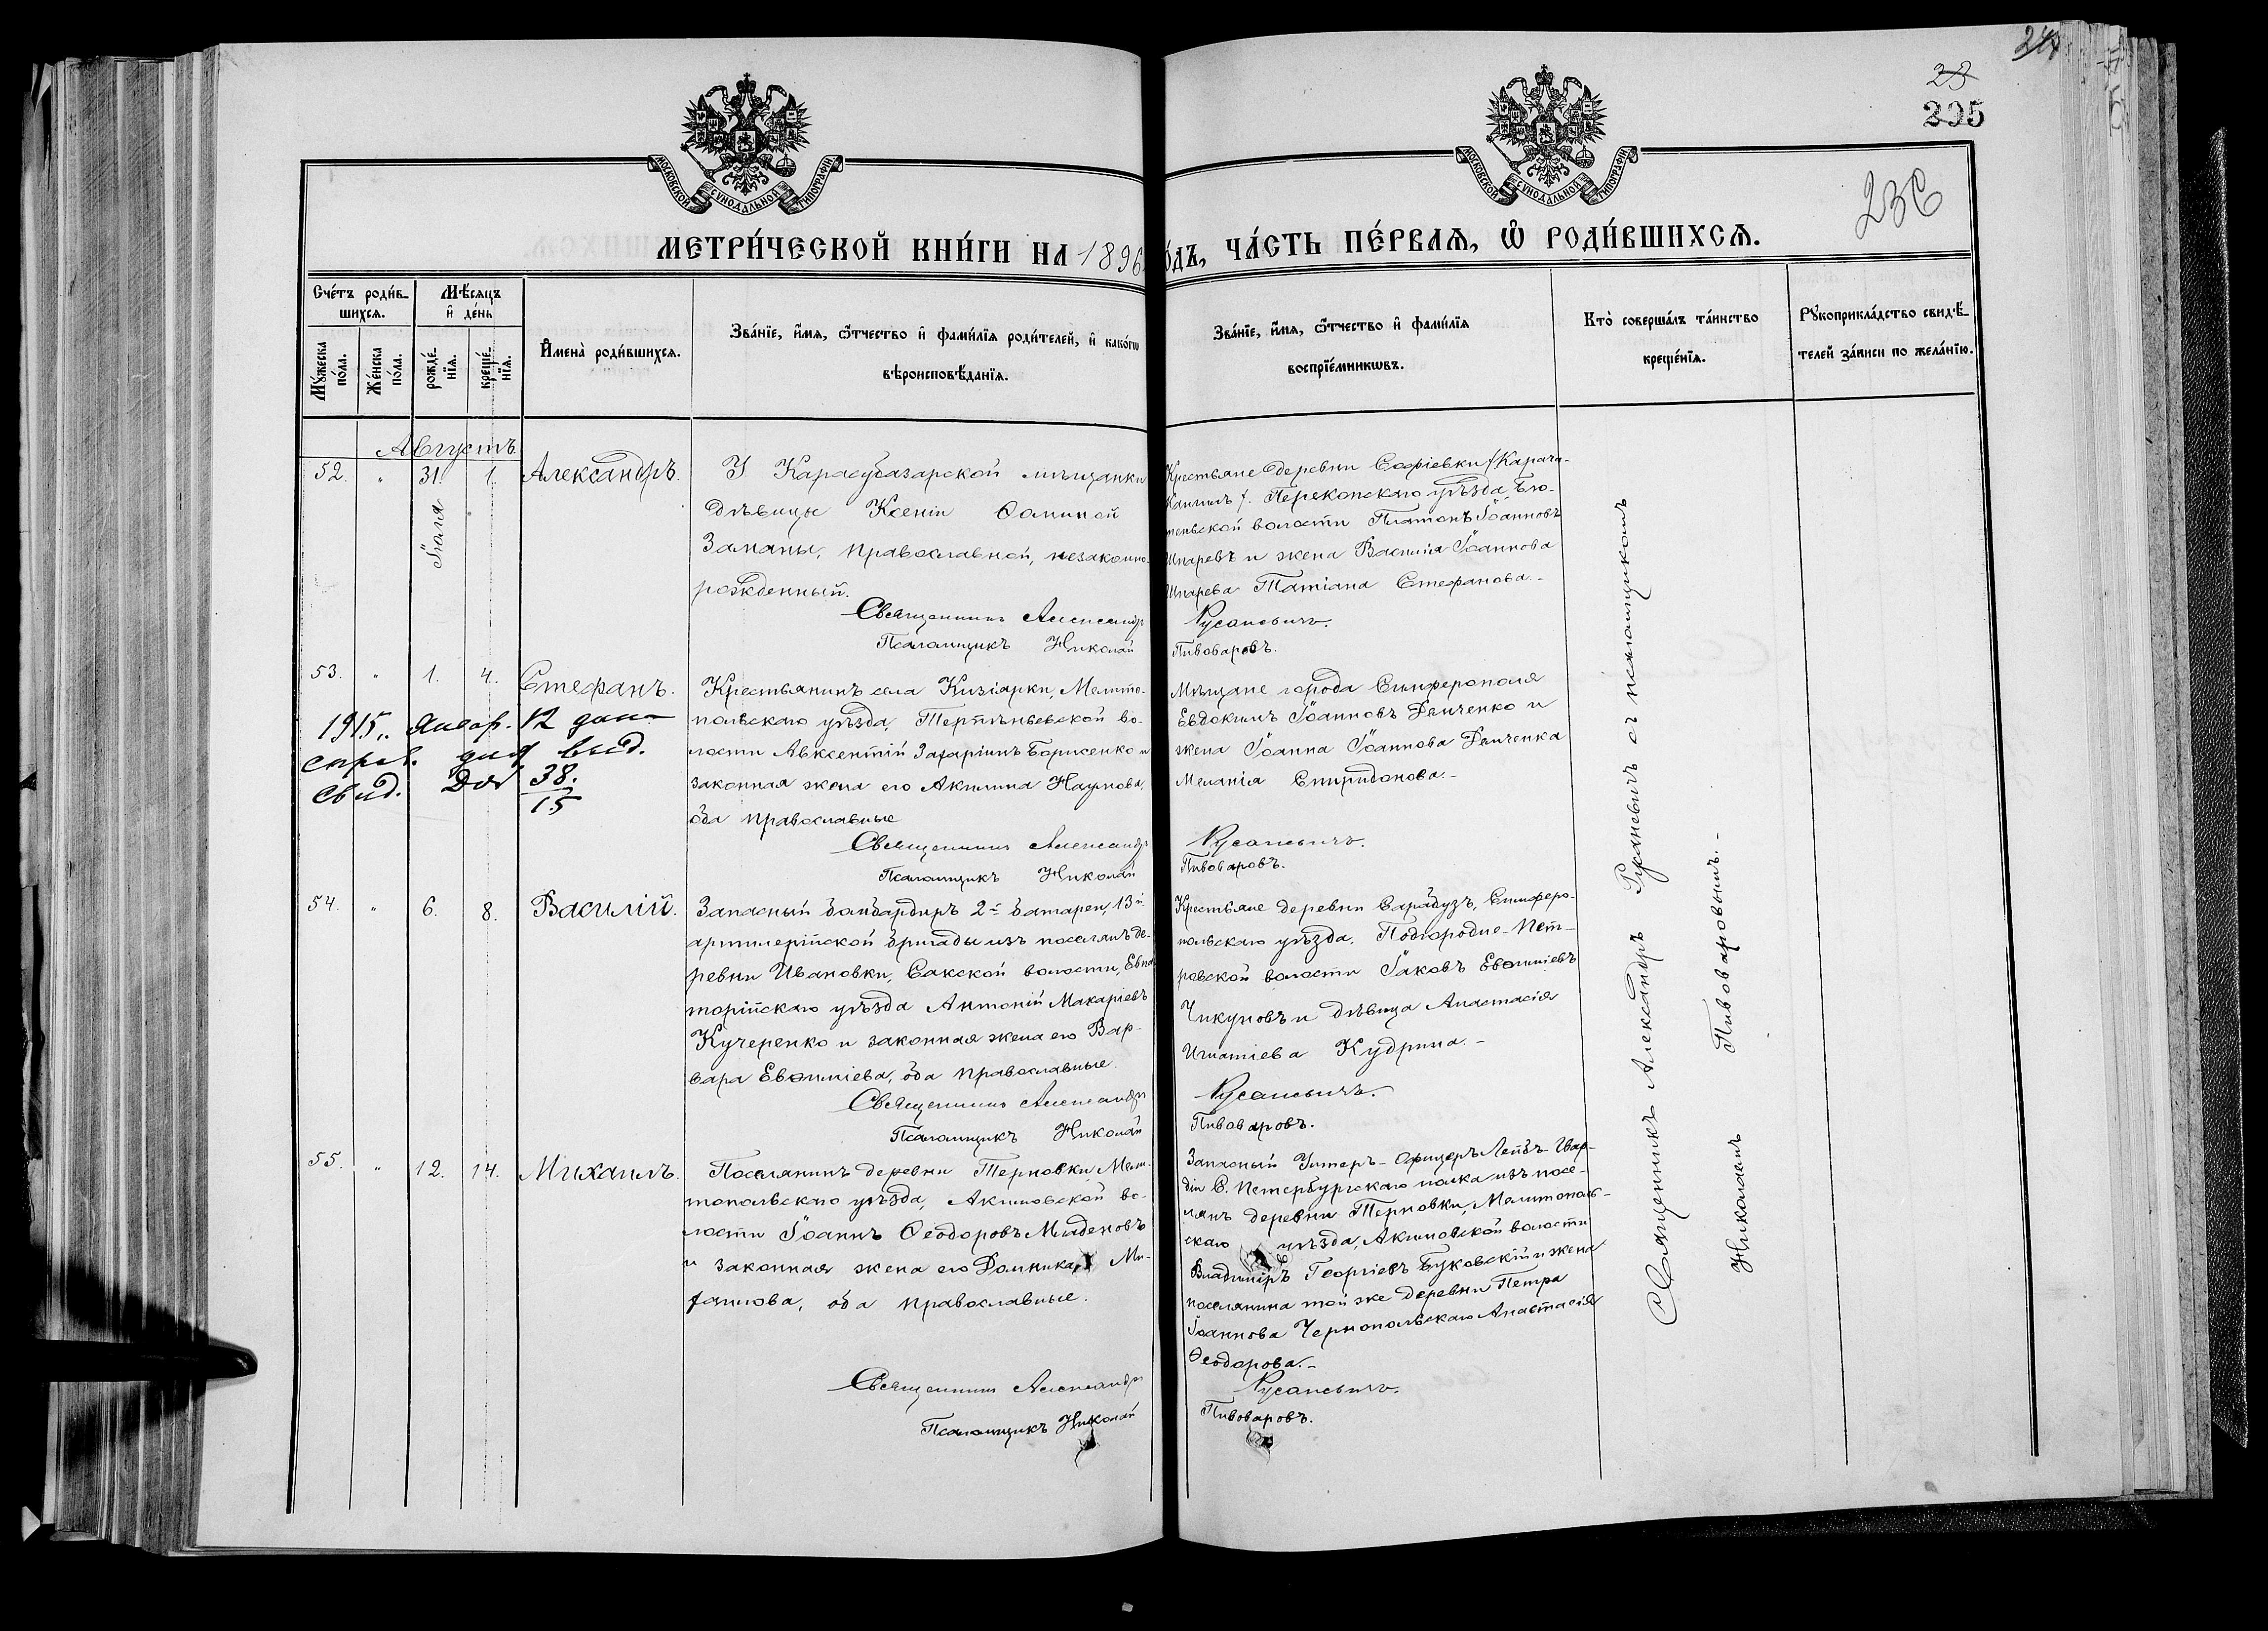 24
23
205
236
МОСКОВСКОЙ СУНОДАЛЬНОЙ ТИПОГРАФІИ
МОСКОВСКОЙ СУНОДАЛЬНОЙ ТИПОГРАФІИ
МЕТРИ́ЧЕСКОЙ КНИ́ГИ НА 1896
О́ДЪ, ЧА́СТЬ ПЕ́РВАЯ, Ѿ РОДИ́ВШИХСЯ.
Сче́тъ роди́в-
шихся.
Мꙋ́жеска
по́ла.
Же́нска
по́ла.
Мѣ́сяцъ
и҆ де́нь
рожде́-
нїя.
креще́-
нїя.
И҆мена̀ роди́вшихся.
Зва́нїе, и҆́мя, ѻ҆́тчество и҆ фами́лїя роди́телей, и҆ како́гѡ
вѣроисповѣ́данїя.
Зва́нїе, и҆́мя, ѻ҆́тчество и҆ фами́лїя
воспрїе́мникѡвъ.
Кто̀ соверша́лъ та́инство
креще́нїя.
Рꙋкоприкла́дство свидѣ́-
телей за́писи по жела́нїю.
Августъ
52. " 31. 1. Александръ.
Іюля
У Карасубазарской мѣщанки
дѣвицы Ксеніи Ѳоминой
Заманы, православной, незаконно-
рожденный.
Священникъ Александръ
Псаломщикъ Николай
Крестьяне деревни Софіевки (Карача-
Перекопскаго уѣзда, Бю-
теньской волости Платонъ Іоанновъ
и жена Василія Іоаннова
Татіана Стефанова.-
Русаневичъ.
Пивоваровъ.
53. " 1. 4. Стефанъ.
1915 г. Январ. 12 дана
справ. для выд.
свид. 38.
15
Крестьянинъ села Кизіярки, Мелито-
польскаго уѣзда, Терпѣньевской во-
лости Авксентій Захаріинъ Борисенко и
законная жена его Акилина Наумова,
оба православные
Священникъ Александръ
Псаломщикъ Николай
Мѣщане города Симферополя
Евдокимъ Іоанновъ Демченко и
жена Іоанна Іоаннова Демченка
Меланія Спиридонова.-
Русаневичъ.
Пивоваровъ.
54. " 6. 8. Василій.
Запасный бомбардиръ 2-й батареи, 13-й
артиллерійской бригады изъ поселянъ де-
ревни Ивановки, Сакской волости, Евпа-
торійскаго уѣзда Антоній Макаріевъ
Кучеренко и законная жена его Вар-
вара Евѳиміева, оба православные.
Священникъ Александръ
Псаломщикъ Николай
Крестьяне деревни Сарабузъ, Симферо-
польскаго уѣзда, Подгородне-Пет-
ровской волости Іаковъ Евѳиміевъ
Чикуновъ и дѣвица Анастасія
Игнатіева Кудрина.-
Русаневичъ.
Пивоваровъ.
55. " 12. 14. Михаилъ.
Поселянинъ деревни Терновки, Мели-
топольскаго уѣзда, Акимовской во-
лости Іоаннъ Ѳеодоровъ Младеновъ
и законная жена его Домника Ми-
хаилова, оба православные.
Священникъ Александръ
Псаломщикъ Николай
Запасный Унтеръ-Офицеръ Лейбъ-Гвар-
діи С. Петербургскаго полка изъ посе-
лянъ деревни Терновки, Мелитополь-
скаго уѣзда, Акимовской волости
Владиміръ Георгіевъ Буковскій и жена
поселянина той же деревни Петра
Іоаннова Чернопольскаго Анастасія
Ѳеодорова.-
Русаневичъ.
Пивоваровъ.
Священникъ Александръ Русаневичъ съ псаломщикомъ
Николаемъ Пивоваровымъ.-